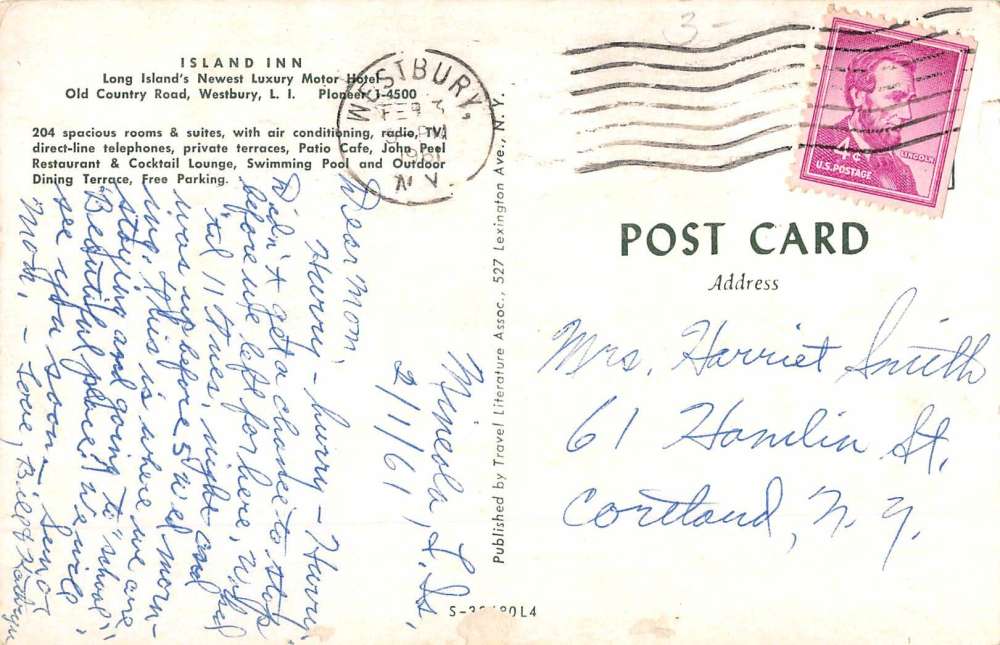 ISLAND INN
Long Island's Newest Luxury Motor Hotel
Old Country Road, Westbury, L. I. PIoneer 1-4500
204 spacious rooms & suites, with air conditioning, radio, TV,
direct-line telephones, private terraces, Patio Cafe, John Peel
Restaurant & Cocktail Lounge, Swimming Pool and Outdoor
Dining Terrace, Free Parking.
Mineola, L. Is.
2/1/61
Dear Mom,
Hurry - hurry - Hurry.
Didn't get a chance to stop
before we left for here, Worked
'til 11 tues. night and
was up before 5 wed morn-
ing. This is where we are
staying and going to "school".
Beautiful place! We will
see you soon -
Mom, - Love, Bill & Kathryn
Published by Travel Literature Assoc., 527 Lexington Ave., N.Y.
WESTBURY,
FEB 3
PM
1961
N.Y.
3-
4¢
LINCOLN
U.S. POSTAGE
POST CARD
Address
Mrs. Harriet Smith
61 Hamlin St.
Cortland, N.Y.